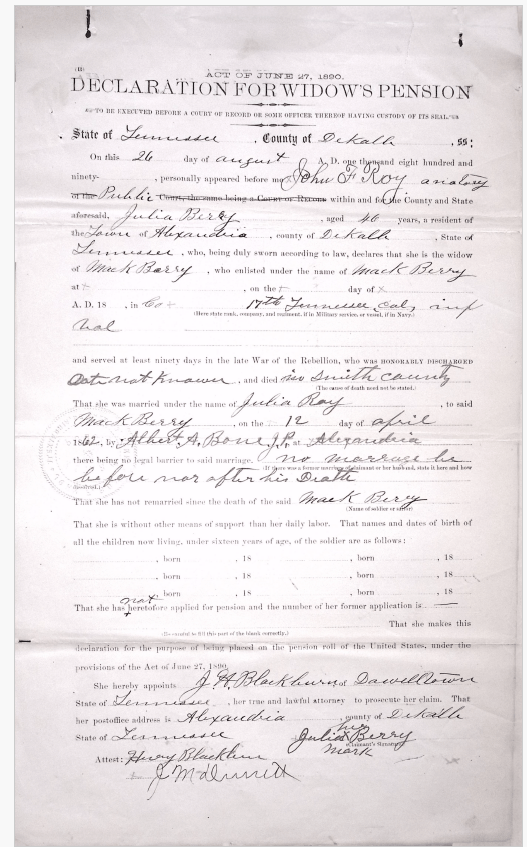 ACT OF JUNE 27, 1890.
DECLARATION FOR WIDOW'S PENSION
TO BE EXECUTED BEFORE A COURT OF RECORD OR SOME OFFICER THEREOF HAVING CUSTODY OF ITS SEAL.
State of Tennessee, County of DeKalb, ss:
On this 26 day of august A. D. one thousand eight hundred and
ninety- , personally appeared before me John F Roy a notary
of the Public Court, the same being a Court of Record within and for the County and State
aforesaid, Julia Berry, aged 46 years, a resident of
the Town of Alexandria, county of DeKalb, State of
Tennessee, who, being duly sworn according to law, declares that she is the widow
of Mack Barry, who enlisted under the name of Mack Berry
at , on the day of
A. D. 18 , in Co 17th Tennessee Cal
(Here state rank, company, and regiment, if in Military service, or vessel, if in Navy.)
and served at least ninety days in the late War of the Rebellion, who was HONORABLY DISCHARGED
Date not known, and died in Smith county
(The cause of death need not be stated.)
That she was married under the name of Julia Roy, to said
Mack Berry, on the 12 day of april
1862, by Albert A. Bone J.P. at Alexandria
there being no legal barrier to said marriage. no marriage be
(If there was a former marriage of claimant or her husband, state it here and how
before nor after his Death
dissolved.)
That she has not remarried since the death of the said Mack Berry
(Name of soldier or sailor)
That she is without other means of support than her daily labor. That names and dates of birth of
all the children now living, under sixteen years of age, of the soldier are as follows:
, born , 18 , born , 18
, born , 18 , born , 18
, born , 18 , born , 18
not
That she has heretofore applied for pension and the number of her former application is
That she makes this
(Be careful to fill this part of the blank correctly.)
declaration for the purpose of being placed on the pension roll of the United States, under the
provisions of the Act of June 27, 1890.
She hereby appoints J. H. Blackburn of Dowelltown
State of Tennessee, her true and lawful attorney to prosecute her claim. That
her postoffice address is Alexandria, county of DeKalb
State of Tennessee
her
Julia Berry
(Claimant's Signature)
mark
Attest: Henry Blackburn